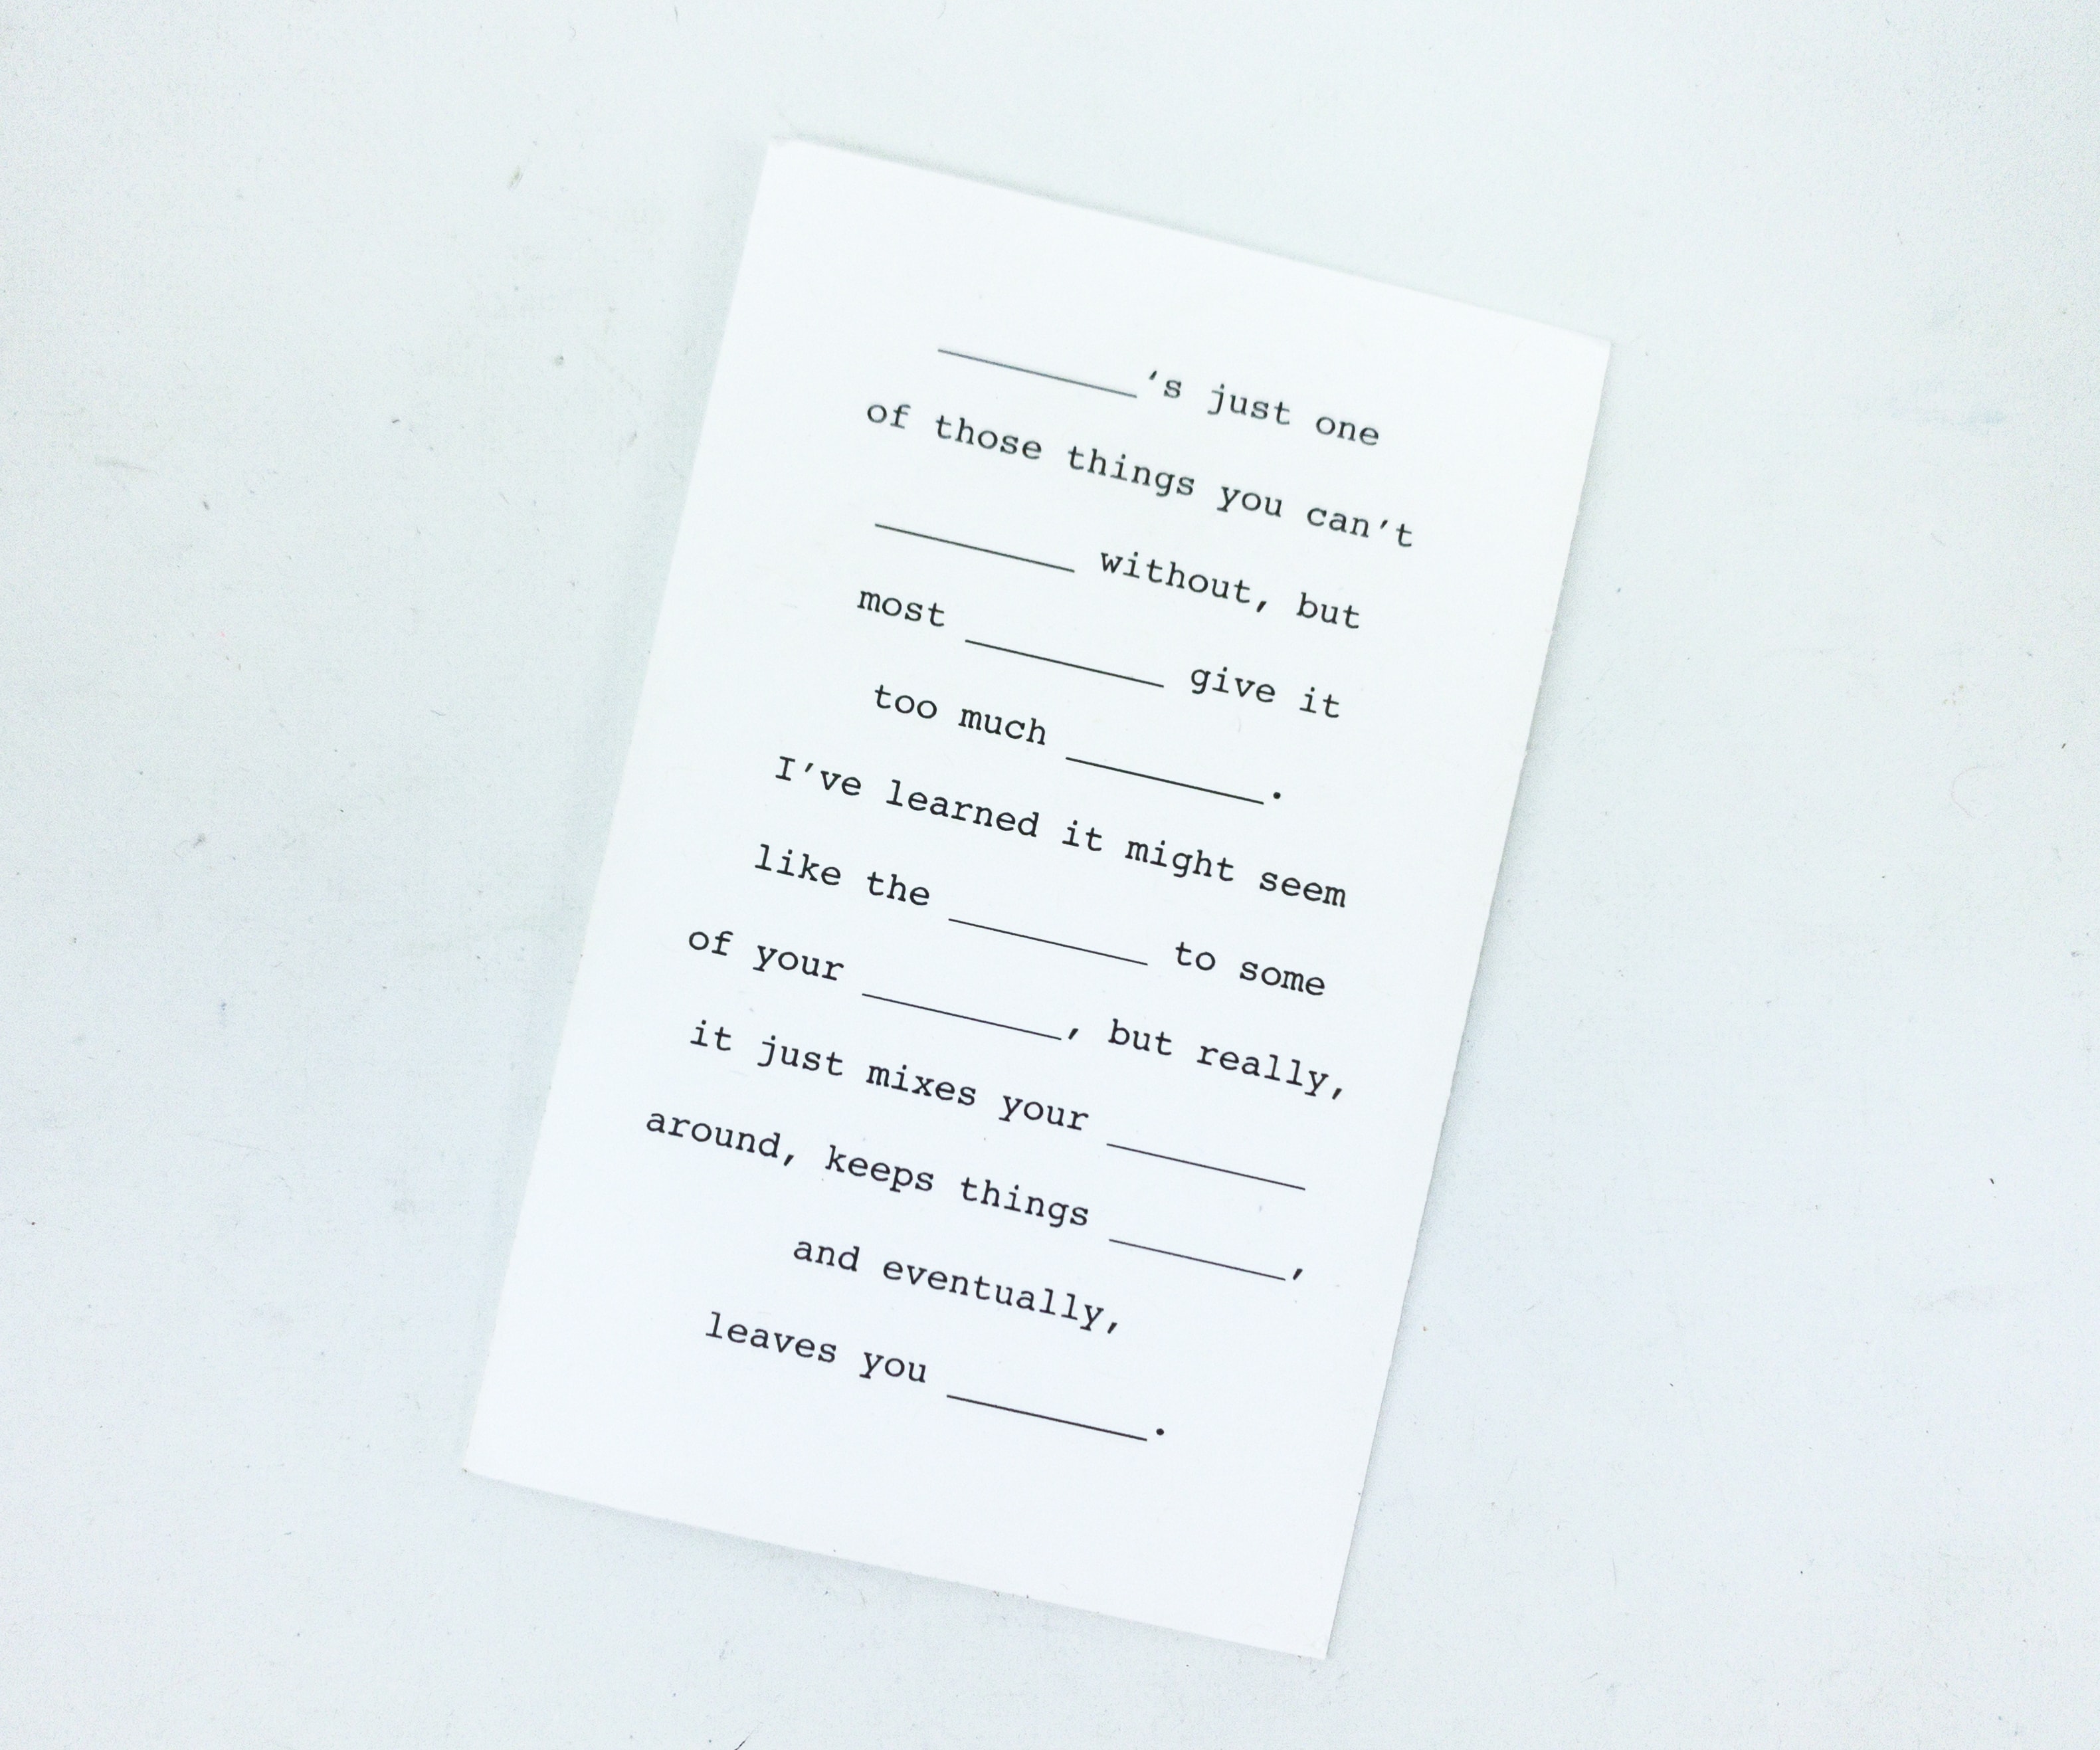 ________'s just one
of those things you can't
________ without, but
most ________ give it
too much ________.
I've learned it might seem
like the ________ to some
of your ________, but really,
it just mixes your ________
around, keeps things _______,
and eventually,
leaves you ________.